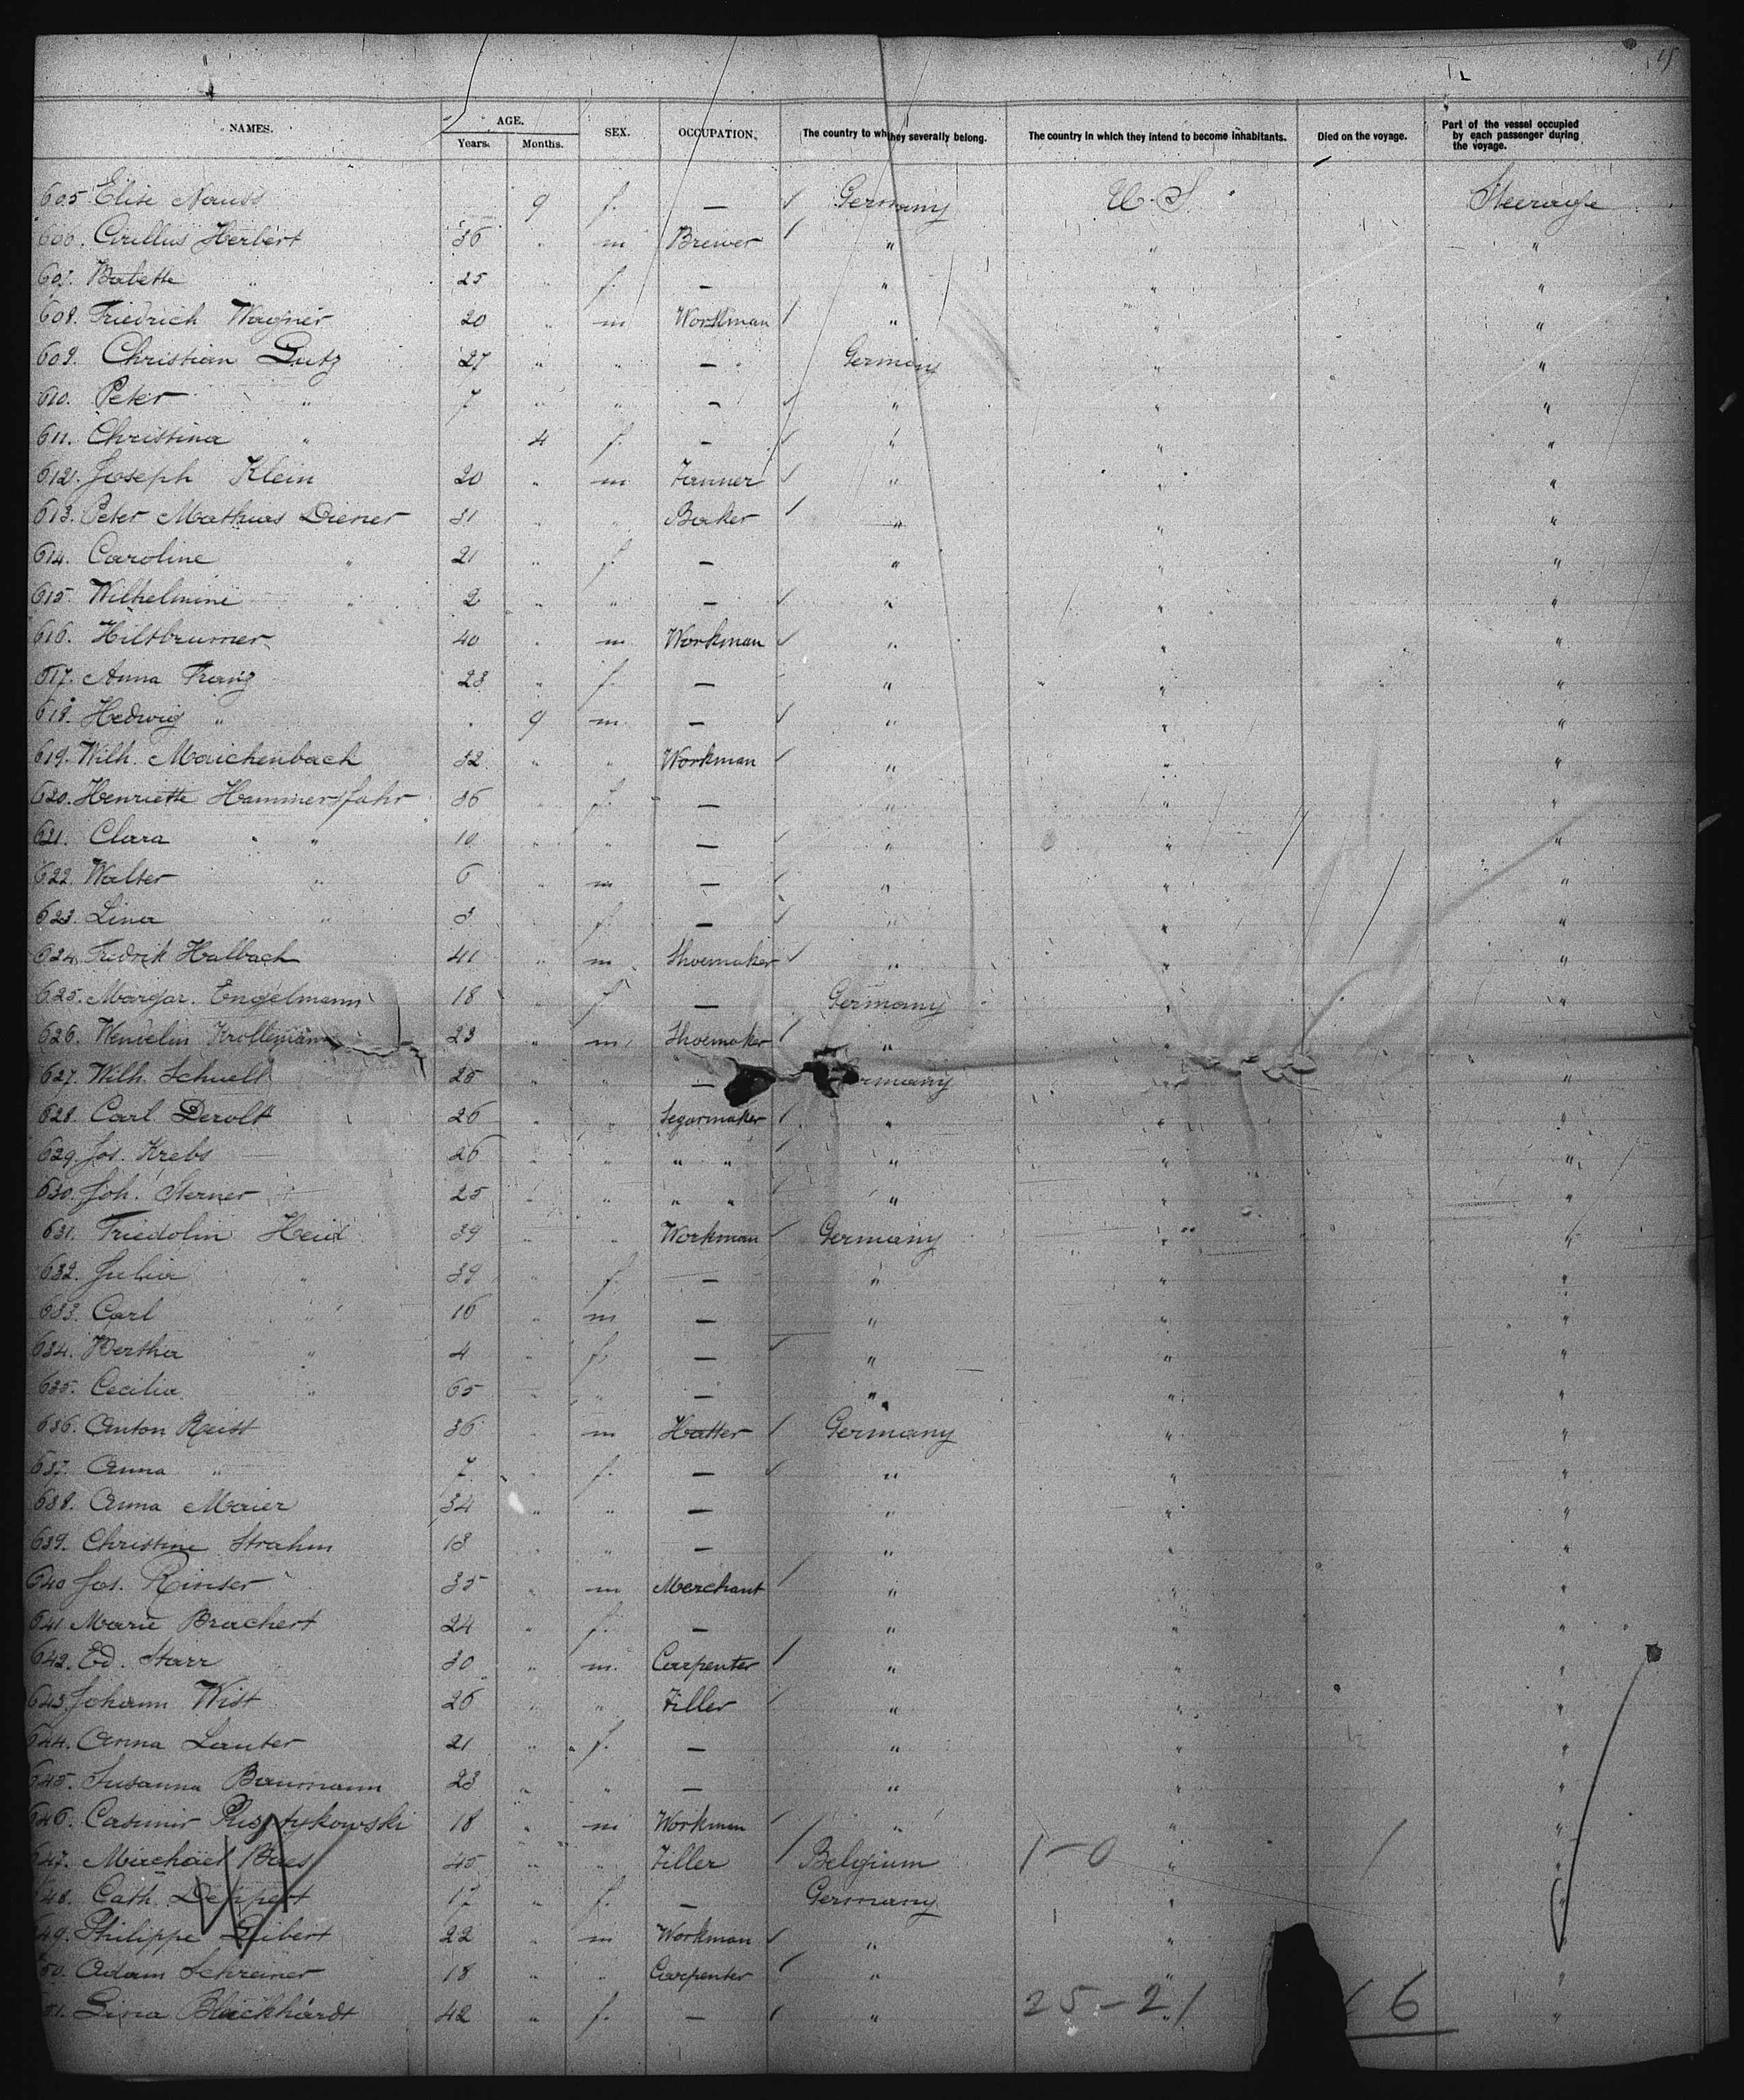 NAMES. AGE. SEX. OCCUPATION. The country to wh they severally belong. The country in which they intend to become inhabitants. Died on the voyage. Part of the vessel occupied by each passenger during the voyage.
Years. Months.
605 Elise Nauss 9 f. — Germany U.S. Steerage
606. Cirillus Herbert 36 " m Brewer " " "
607. Babette " 25 " f. — " " "
608. Friedrich Wagner 20 " m Workman " " "
609. Christian Lutz 27 " " — Germany " "
610. Peter " 7 " " — " " "
611. Christina " 4 f. — " " "
612. Joseph Klein 20 " m Tanner " " "
613. Peter Mathias Diener 31 " " Baker " " "
614. Caroline " 21 " f. — " " "
615. Wilhelmine " 2 " " — " " "
616. Hiltbrunner 40 " m Workman " " "
617. Anna Franz 23 " f. — " " "
618. Hedwig " 9 m — " " "
619. Wilh. Maichenbach 32 " " Workman " " "
620. Henriette Hammersfahr 36 " f. — " " "
621. Clara " " 10 " " — " " "
622. Walter " 6 " m — " " "
623. Lina " 3 " f. — " " "
624. Fredrik Halbach 41 " m Shoemaker " " "
625. Margar. Engelmann 18 " f. — Germany " "
626. Wendelin 23 " m Shoemaker " " "
627. Wilh. Schuelt 25 " " — rmany " "
628. Carl Derolt 26 " " Segarmaker " " "
629. Jos. Krebs 26 " " " " " " "
630. Joh. Sterner 25 " " " " " " "
631. Friedolin Heid 39 " " Workman Germany " "
632. Julia " 39 " f. — " " "
633. Carl " 16 " m — " " "
634. Bertha " 4 " f. — " " "
635. Cecilia " 65 " " — " " "
636. Anton Reist 36 " m Hatter Germany " "
637. Anna " 7 " f. — " " "
638. Anna Maier 34 " " — " " "
639. Christine Strahm 13 " " — " " "
640 Jos. Rinser 35 " m Merchant " " "
641 Marie Brachert 24 " f. — " " "
642. Ed. Starr 30 " m. Carpenter " " "
643. Johann Wist 26 " " Tiller " " "
644. Anna Lauter 21 " f. — " " "
645. Susanna Baumann 23 " " — " " "
646. Casimir 18 " m Workman " " "
47. Machael Baes 45 " " Tiller Belgium 1-0 " 1 "
48. Cath. Deppert 17 " f. — Germany " "
49. Philippe Leibert 22 " m Workman " " "
50. Adam Schreiner 18 " " Carpenter " " "
51. Lina Blackhardt 42 " f. — " 25-21 " 6 "